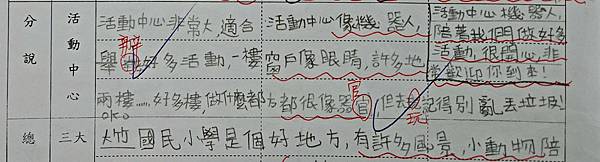 分說
活動中心
活動中心非常大,適合
舉辦好多活動,一樓
兩樓……好多樓,做什麼都
ok。
活動中心像機器人,
窗戶像眼睛,許多地
方都很像器官,但去玩記得別亂丟垃圾!
活動中心機器人,
陪著我們做好多
活動,很開心,非
常歡迎你到本!
總
三大
大竹國民小學是個好地方,有許多風景,小動物陪